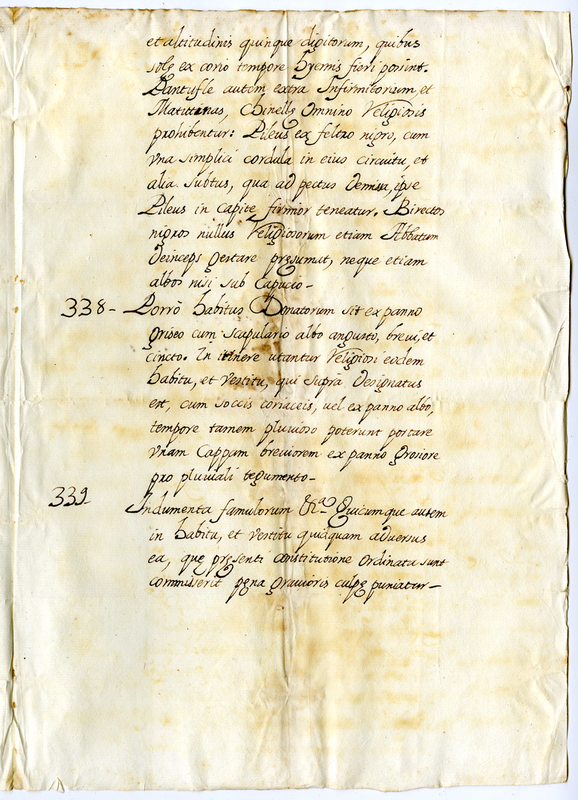 et altitudinis quinque digitorum, quibus
solę ex corio tempore hyemis fieri poterint.
Pantuflę autem extra Infirmitorium, et
Matutinas, Chinellę Omnino Religiosis
prohibentur: Pileus ex feltro nigro, cum
vna simplici cordula in eius circuitu, et
alia subtus, qua ad pectus demissa, ipse
Pileus in capite firmior teneatur. Birectos
nigros nullus Religiosorum etiam Abbatum
deinceps gestare pręsumat, neque etiam
albos nisi sub Capucio-
338- Porrò habitus Donatorum sit ex panno
griseo cum scapulario albo angusto, breui, et
cincto. In itinere utantur Religiosi eodem
habitu, et vestitu, qui supra designatus
est, cum soccis coriaceis, uel ex panno albo,
tempore tamen pluuioso poterunt portare
vnam Cappam breuiorem ex panno grossiore
pro pluuiali tegumento-
339- Indumenta famulorum &ª Quicumque autem
in habitu, et vestitu quidquam aduersus
ea, quę pręsenti constitutione Ordinata sunt
commiserit pęna grauioris culpę puniatur-